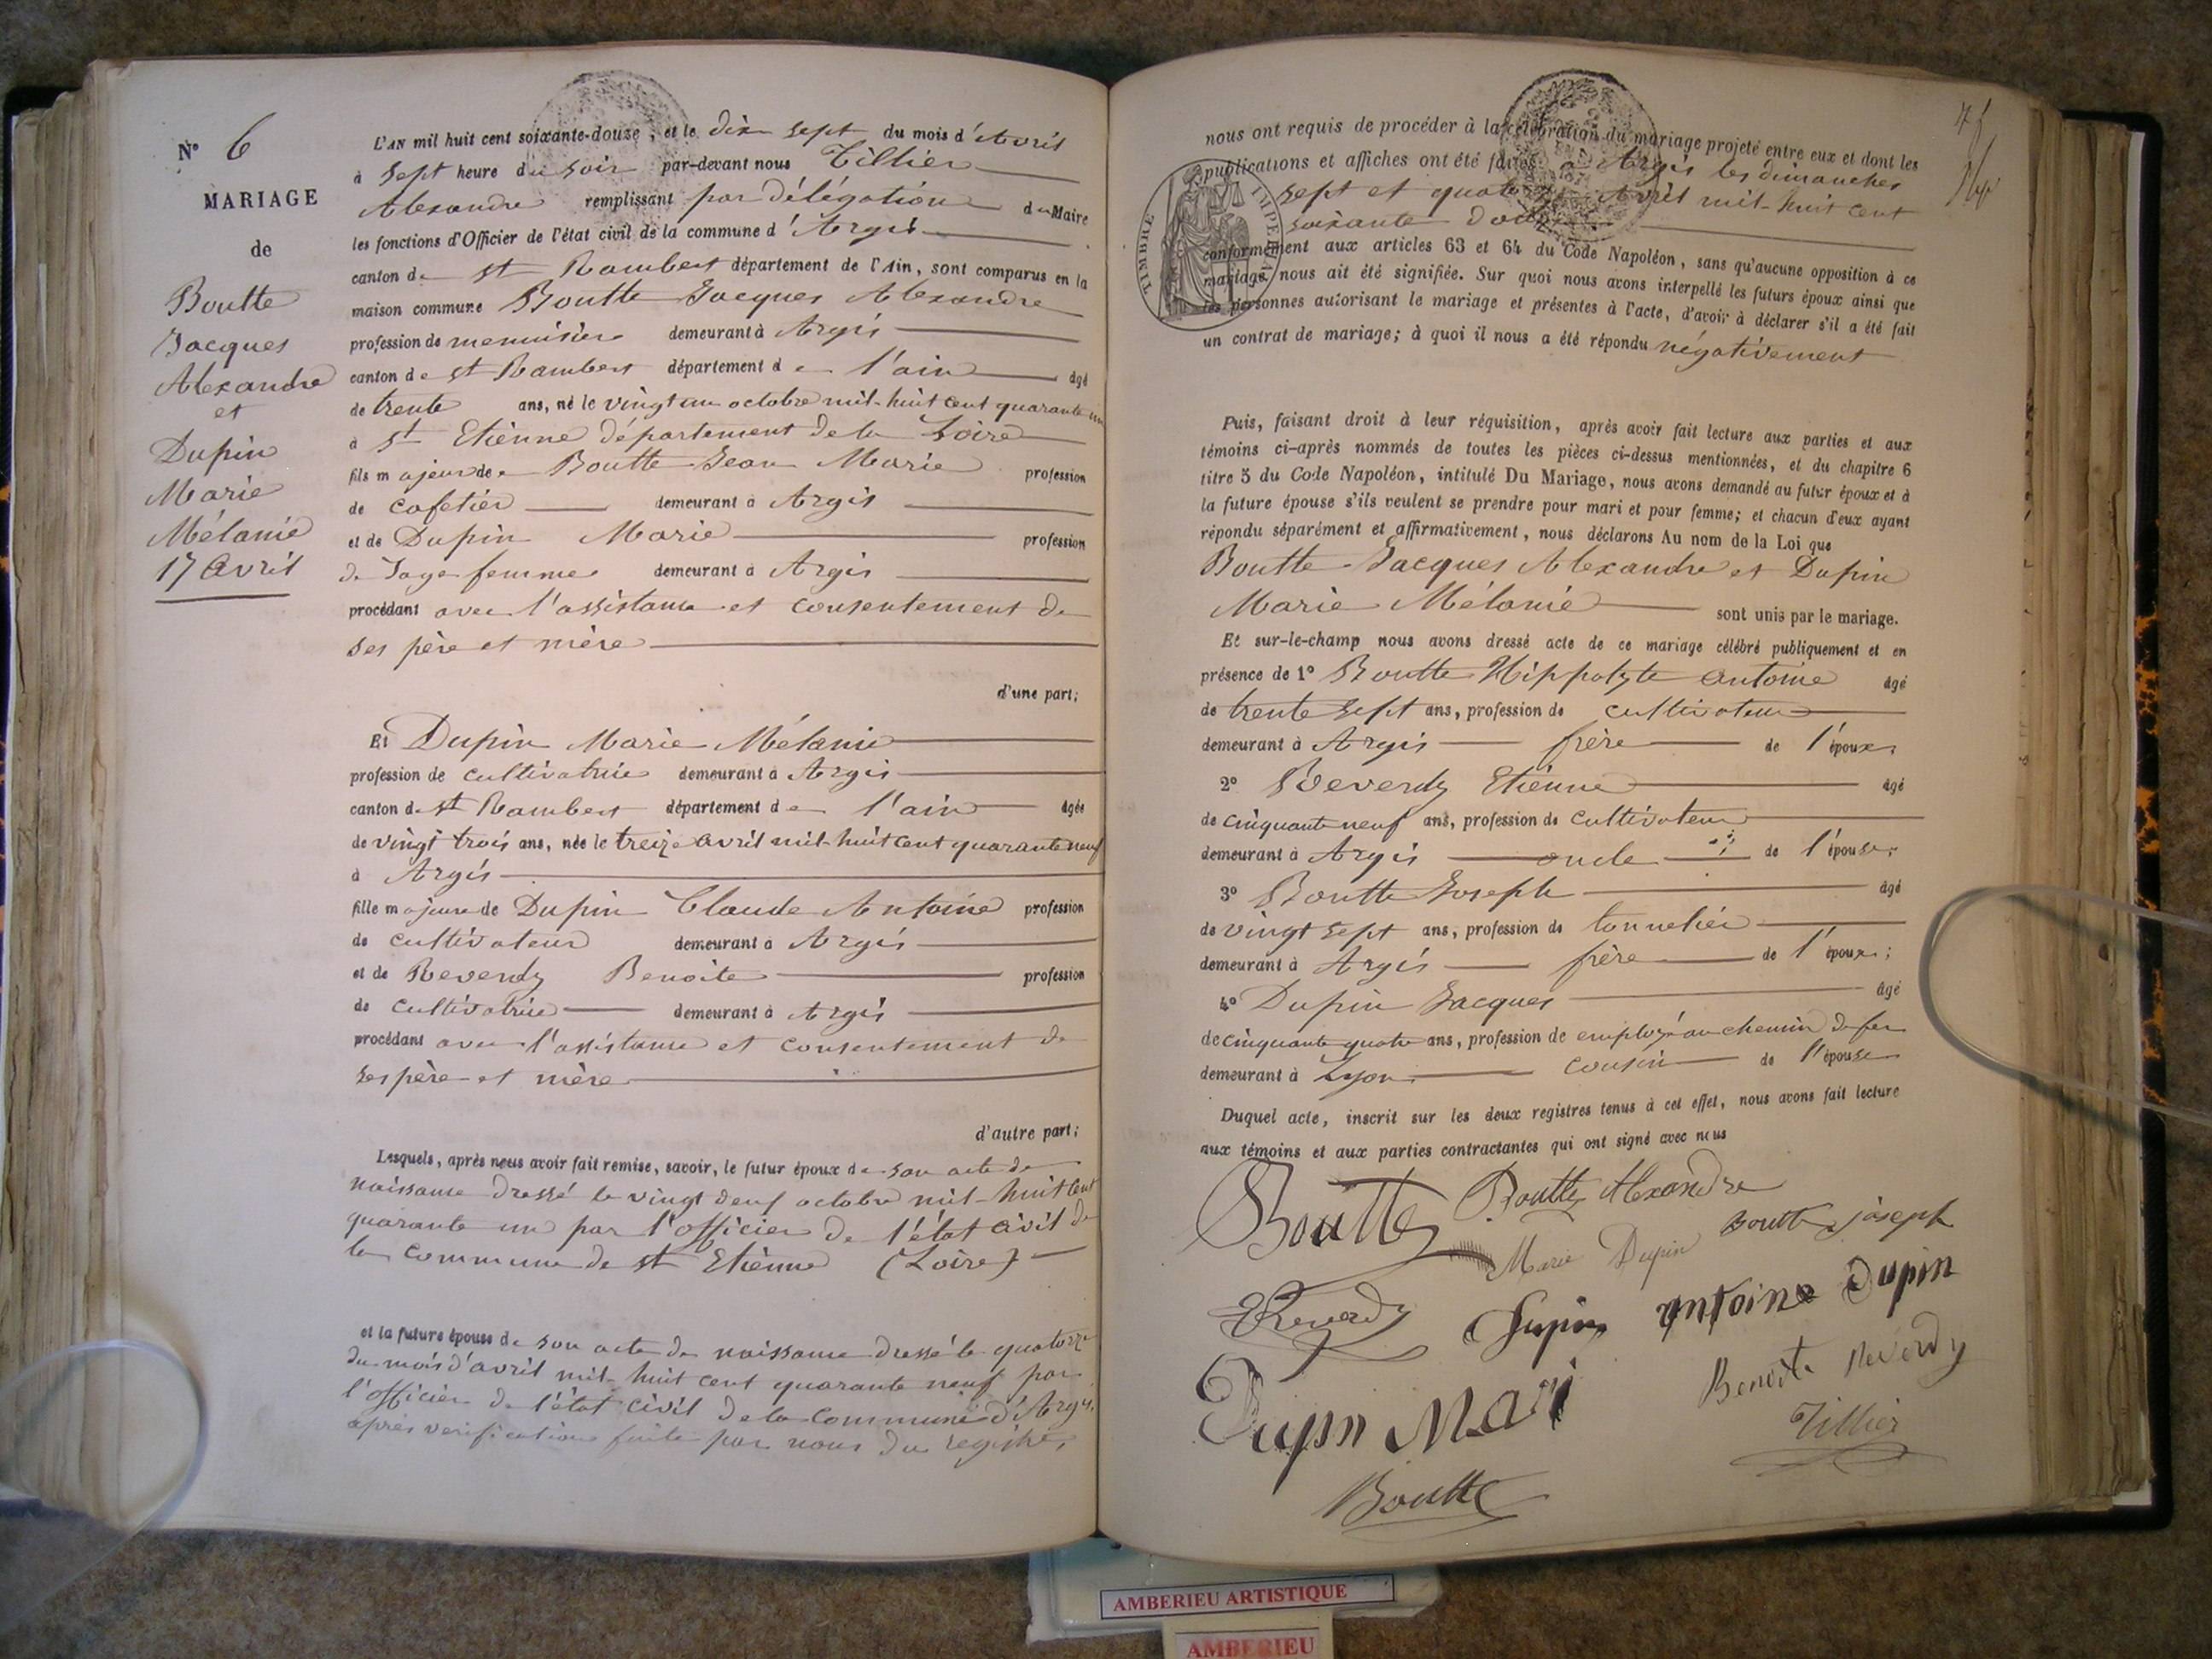 N° 6
MARIAGE
de
Boutte
Jacques
Alexandre
et
Dupin
Marie
Mélanie
17 Avril
L'AN mil huit cent soixante-douze, et le dix sept du mois d'Avril
à sept heure du soir par-devant nous Tillier
Alexandre remplissant par délégation du Maire
les fonctions d'Officier de l'état civil de la commune d'Argis
canton de st Rambert département de l'Ain, sont comparus en la
maison commune Boutte Jacques Alexandre
profession de menuisier demeurant à Argis
canton de st Rambert département de l'ain âgé
de trente ans, né le vingt un octobre mil-huit cent quarante un
à st Etienne département de la Loire
fils majeur de Boutte Jean Marie profession
de cafetier demeurant à Argis
et de Dupin Marie profession
de Sage femme demeurant à Argis
procédant avec l'assistance et consentement de
ses père et mère
d'une part;
Et Dupin Marie Mélanie
profession de cultivatrice demeurant à Argis
canton de st Rambert département de l'ain âgée
de vingt trois ans, née le treize avril mil-huit cent quarante neuf
à Argis
fille majeure de Dupin Claude Antoine profession
de cultivateur demeurant à Argis
et de Reverdy Benoite profession
de cultivatrice demeurant à Argis
procédant avec l'assistance et consentement de
ses père et mère
d'autre part;
Lesquels, après nous avoir fait remise, savoir, le futur époux de son acte de
naissance dressé le vingt deux octobre mil-huit cent
quarante un par l'officier de l'état civil de
la commune de st Etienne (Loire)
et la future épouse de son acte de naissance dressé le quatorze
du mois d'avril mil-huit cent quarante neuf par
l'officier de l'état civil de la commune d'Argis,
après vérification faite par nous du registre,
nous ont requis de procéder à la célébration du mariage projeté entre eux et dont les
publications et affiches ont été faites à Argis les dimanches
sept et quatorze Avril mil-huit cent
soixante douze
conformément aux articles 63 et 64 du Code Napoléon, sans qu'aucune opposition à ce
mariage nous ait été signifiée. Sur quoi nous avons interpellé les futurs époux ainsi que
les personnes autorisant le mariage et présentes à l'acte, d'avoir à déclarer s'il a été fait
un contrat de mariage; à quoi il nous a été répondu négativement
TIMBRE IMPÉRIAL
Puis, faisant droit à leur réquisition, après avoir fait lecture aux parties et aux
témoins ci-après nommés de toutes les pièces ci-dessus mentionnées, et du chapitre 6
titre 5 du Code Napoléon, intitulé Du Mariage, nous avons demandé au futur époux et à
la future épouse s'ils veulent se prendre pour mari et pour femme; et chacun d'eux ayant
répondu séparément et affirmativement, nous déclarons Au nom de la Loi que
Boutte Jacques Alexandre et Dupin
Marie Mélanie sont unis par le mariage.
Et sur-le-champ nous avons dressé acte de ce mariage célébré publiquement et en
présence de 1° Boutte Hippolyte Antoine âgé
de trente sept ans, profession de cultivateur
demeurant à Argis frère de l'époux;
2° Reverdy Etienne âgé
de cinquante neuf ans, profession de cultivateur
demeurant à Argis oncle de l'épouse;
3° Boutte Joseph âgé
de vingt sept ans, profession de tonnelier
demeurant à Argis frère de l'époux;
4° Dupin Jacques âgé
de cinquante quatre ans, profession de employé au chemin de fer
demeurant à Lyon cousin de l'épouse
Duquel acte, inscrit sur les deux registres tenus à cet effet, nous avons fait lecture
aux témoins et aux parties contractantes qui ont signé avec nous
Boutte Boutte Alexandre
Marie Dupin Boutte joseph
E Reverdy Dupin antoine Dupin
Dupin Mari Benoite Reverdy
Tillier
Boutte
AMBERIEU ARTISTIQUE
AMBERIEU